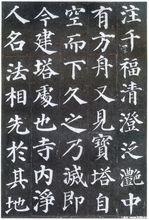 注千福清澄泛灩中
有方舟又見寶塔自
空而下久之乃滅即
今建塔處也寺内淨
人名法相先於其地